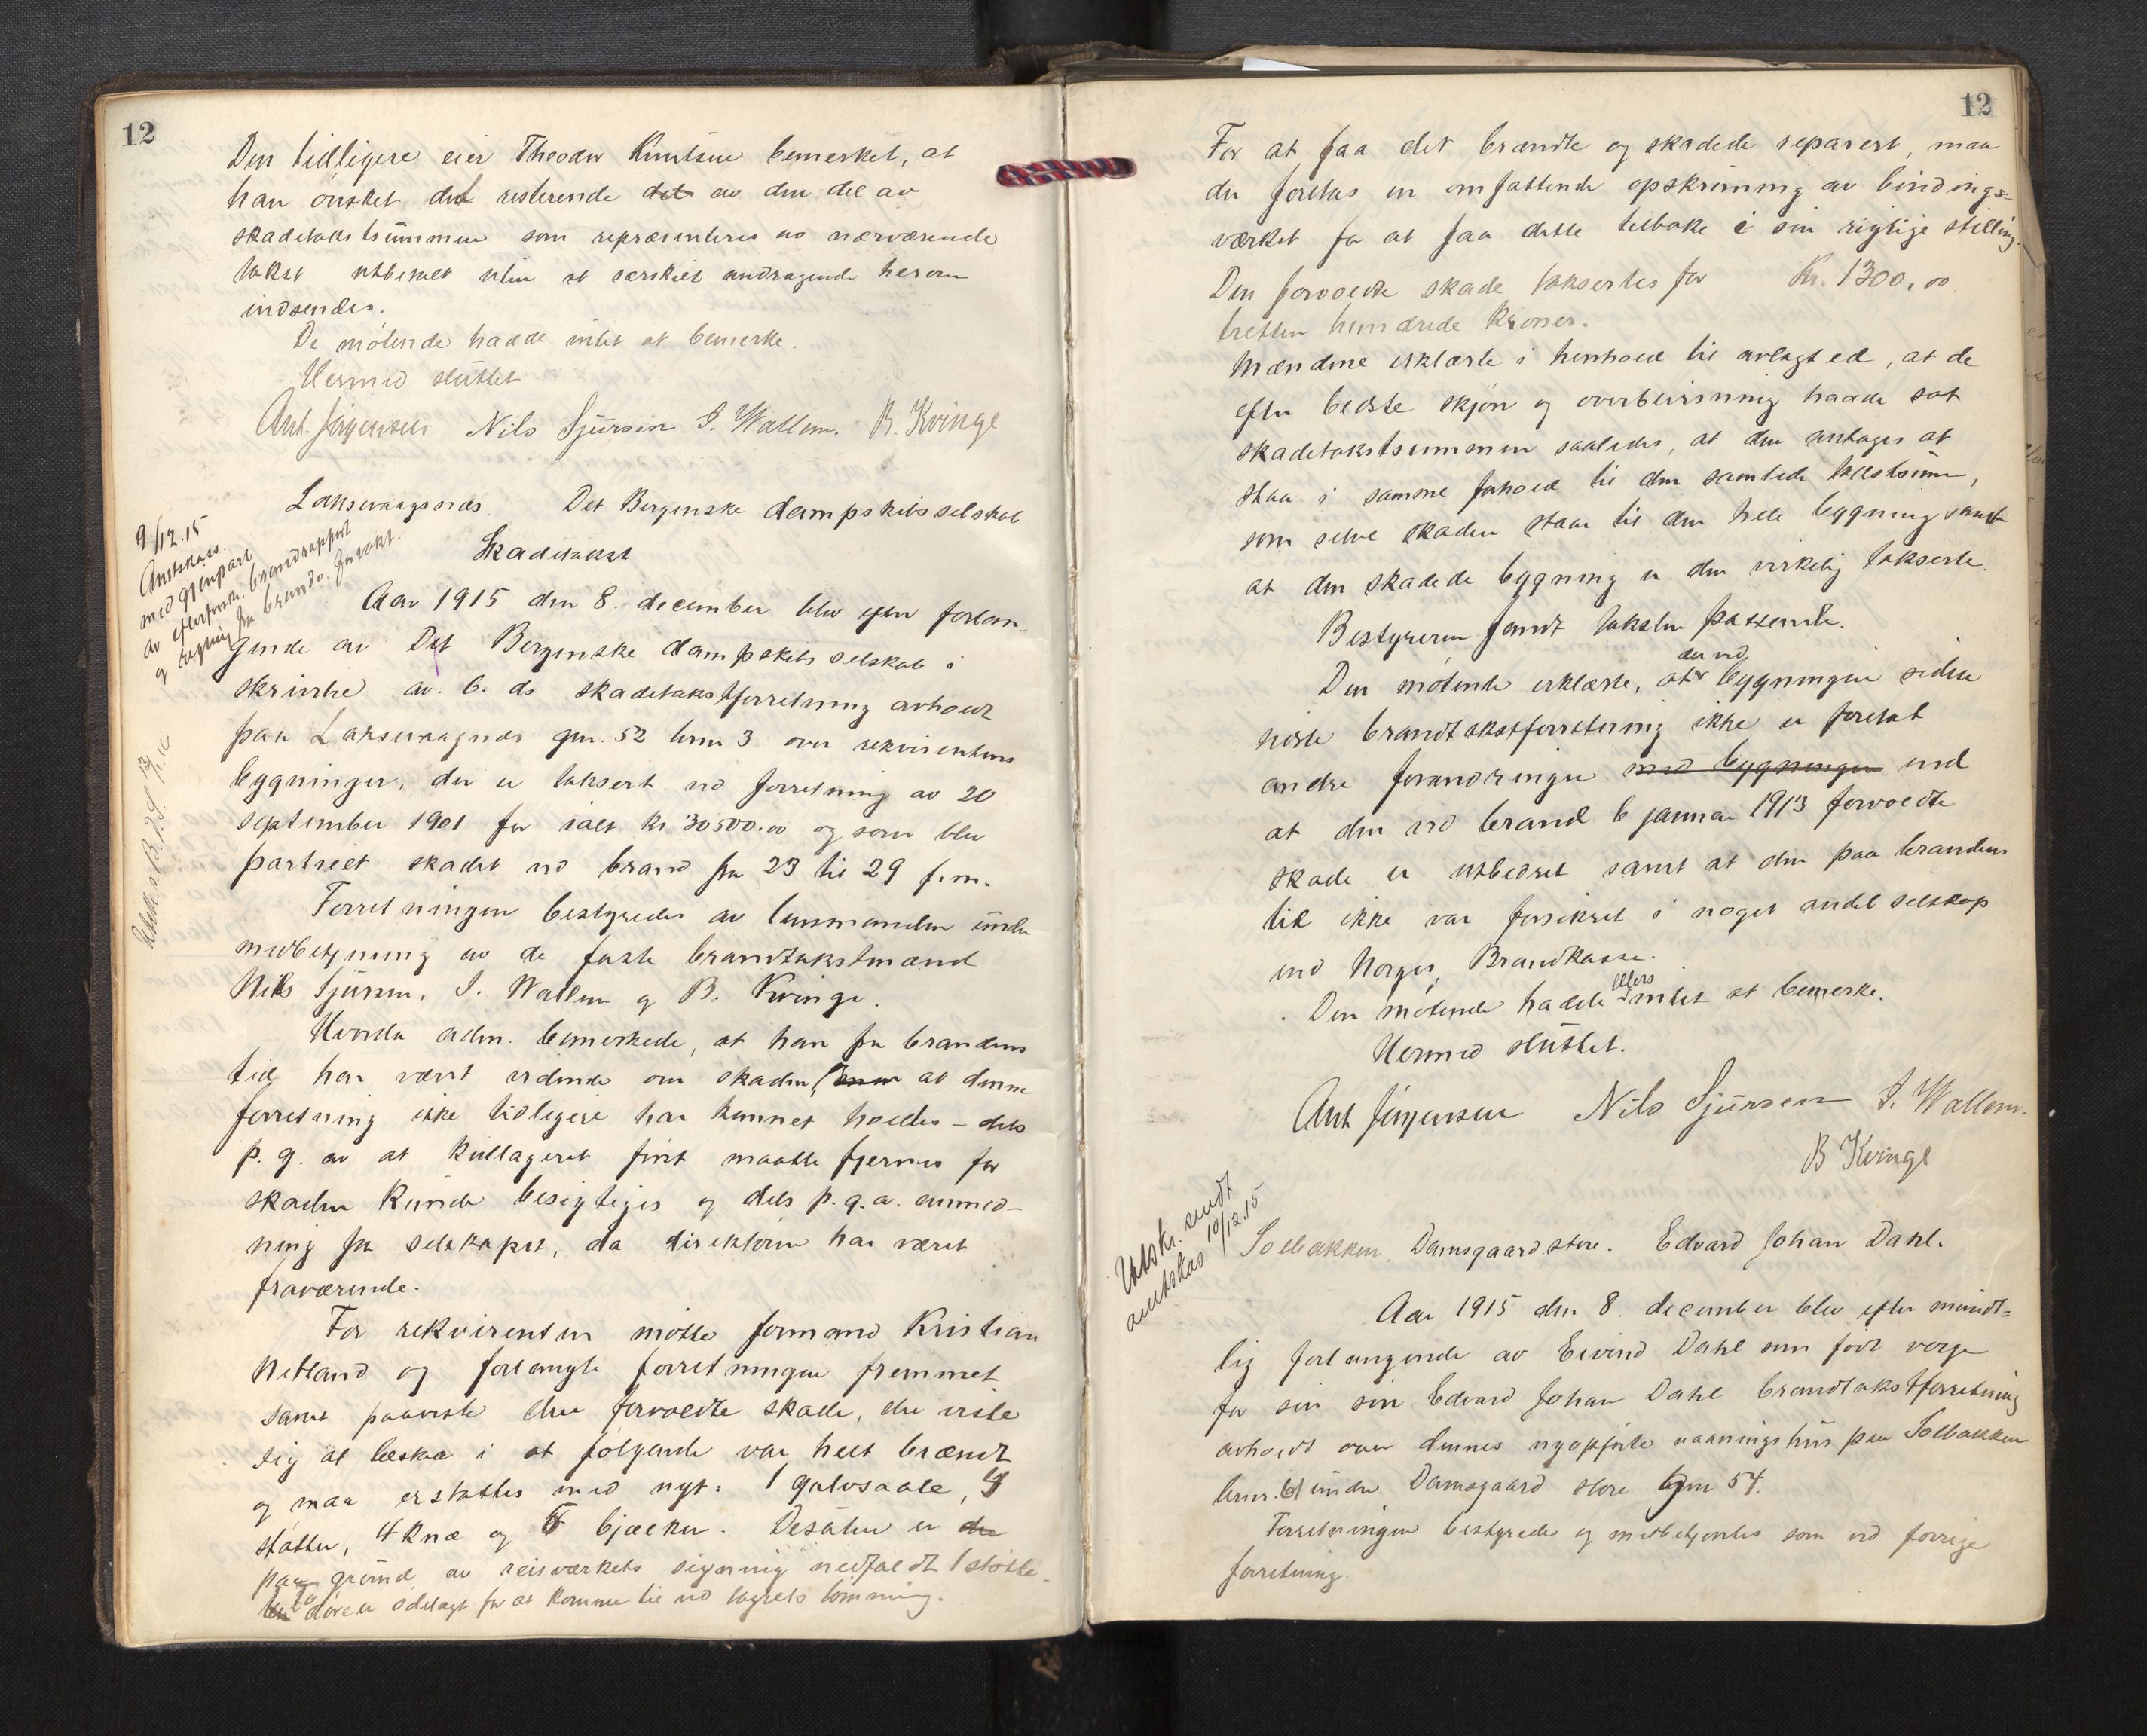 12
Den tidligere eier Theodor Knutsen bemerket, at
han ønsket det resterende det av den del av
skadetakstsummen som repræsenteres av nærværende
takst utbetalt uten at særskilt andragende herom
indsendes.
De møtende hadde intet at bemerke.
Hermed sluttet
Ant. Jørgensen Nils Sjursen I. Wallem. B. Kvinge
Laksevaagsnes. Det Bergenske dampskibsselskab
Skadetakst
9/12.15
Amtskass.
med gjenpart
av efterforsk. brandrapport
og regning fra brandv.
Aar 1915 den 8. december blev efter forlan-
gende av Det Bergenske dampskibsselskab i
skrivelse av 6. ds skadetakstforretning avholdt
paa Laksevaagnes gnr. 52 brnr 3 over rekvirentens
bygninger, der er taksert ved forretning av 20
september 1901 for ialt kr 30500.00 og som blev
partielt skadet ved brand fra 23 til 29 f.m.
Forretningen bestyredes av lensmanden under
medbetjening av de faste brandtakstmænd
Nils Sjursen, I. Wallem og B. Kvinge.
Hvorda adm. bemerkede, at han fra brandens
tid har været vidende om skaden, men at denne
forretning ikke tidligere har kunnet holdes – dels
p. g. av at kullageret først maatte fjernes før
skaden kunde besigtiges og dels p.g.a. anmod-
ning fra selskapet, da direktøren har været
fraværende.
For rekvirenten møtte formand Kristian
Netland og forlangte forretningen fremmet
samt paaviste den forvoldte skade, der viste
sig at bestaa i at følgende var helt brændt
og maa erstattes med nyt: 1 gulvsaale, 4
støtter, 4 knæ og 5 bjælker. Desuten er der
paa grund av reisverkets signing nedfaldt 1 støtte.
2 døre er ødelagt for at komme til ved lagrets tømming.
12
For at faa det brændte og skadede reparert, maa
der foretas en omfattende opskruning av bindings-
værket for at faa dette tilbake i sin rigtige stilling.
Den forvoldte skade taksertes for Kr. 1300,00
tretten hundrede kroner.
Mændene erklærte i henhold til avlagt ed, at de
efter bedste skjøn og overbevisning hadde sat
skadetakstsummen saaledes, at den antages at
staa i samme forhold til den samlede takstsum,
som selve skaden staar til den hele bygning samt
at den skadede bygning er den virkelig takserte.
Bestyreren fandt taksten passende.
Den møtende erklærte, at der ved bygningen siden
siste brandtakstforretning ikke er foretat
andre forandringer med bygningen end
at den ved brand 6 januar 1913 forvoldte
skade er utbedret samt at den paa brandens
tid ikke var forsikret i noget andet selskap
end Norges Brandkasse.
Den møtende hadde ellers intet at bemerke.
Hermed sluttet.
Ant Jørgensen Nils Sjursen I. Wallem.
B Kvinge
Utskr. sendt
amtskas. 10/12.15
Solbakken, Damsgaard store. Edvard Johan Dahl.
Aar 1915 den 8. december blev efter mundt-
lig forlangende av Eivind Dahl som født verge
for sin søn Edvard Johan Dahl brandtakstforretning
avholdt over dennes nyopførte vaaningshus paa Solbakken
brnr. 61 under Damsgaard store gnr 54.
Forretningen bestyredes og medbetjentes som ved forrige
forretning.